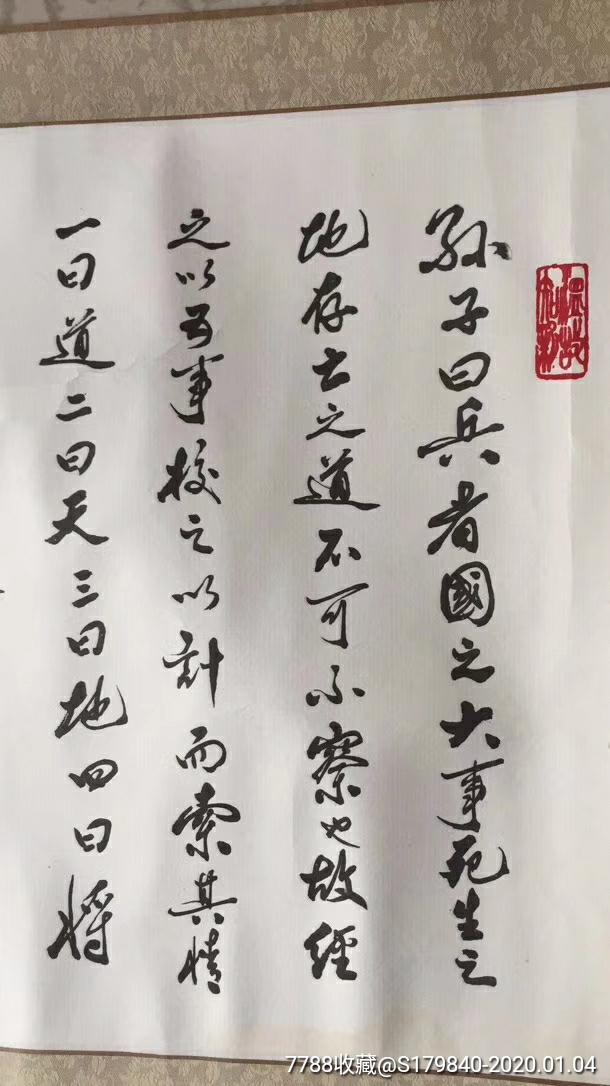 孫子曰兵者國之大事死生之
地存亡之道不可不察也故經
之以五事校之以計而索其情
一曰道二曰天三曰地四曰将
7788收藏@S179840-2020.01.04